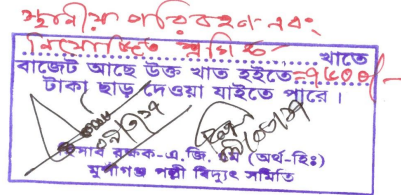 স্থানীয় পরিবহণ এবং
নিয়োজিত শ্রমিক খাতে
বাজেট আছে উক্ত খাত হইতে=৭৫০০/-
টাকা ছাড় দেওয়া যাইতে পারে।
হিসাব রক্ষক-এ.জি.এম (অর্থ-হিঃ)
মুন্সীগঞ্জ পল্লী বিদ্যুৎ সমিতি